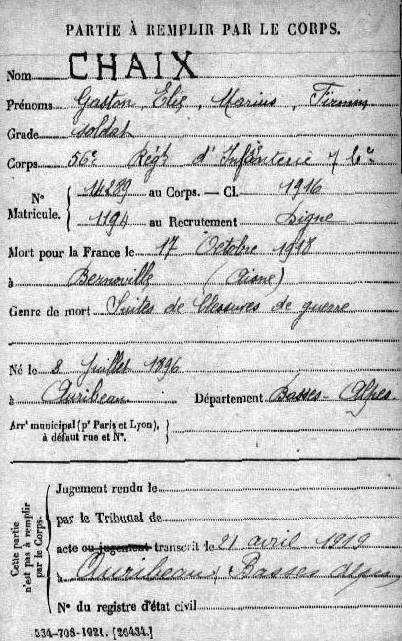 PARTIE À REMPLIR PAR LE CORPS.
Nom CHAIX
Prénoms Gaston, Elie, Marius, Firmin
Grade soldat
Corps 56e Régt d'Infanterie
N° Matricule. 14289 au Corps. — Cl. 1916
1194 au Recrutement Digne
Mort pour la France le 17 Octobre 1918
à Bernoville (Aisne)
Genre de mort Suites de blessures de guerre
Né le 8 Juillet 1896
à Auribeau Département Basses-Alpes
Arrt municipal (pr Paris et Lyon),
à défaut rue et N°.
Cette partie n'est pas à remplir par le Corps.
Jugement rendu le
par le Tribunal de
acte ou jugement transcrit le 21 avril 1919
à Auribeau, Basses Alpes
N° du registre d'état civil
534-708-1921. [26434.]